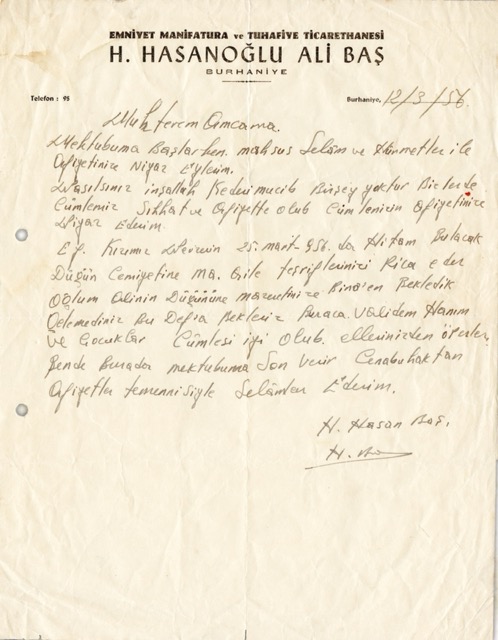 EMNİYET MANİFATURA ve TUHAFİYE TİCARETHANESİ
H. HASANOĞLU ALİ BAŞ
BURHANİYE
Telefon : 95
Burhaniye, 12/3/56.
Muhterem Amcama.
Mektubuma Başlarken. mahsus Selâm ve Hürmetler ile
Afiyetinize Niyaz Eylerim.
Nasılsınız inşallah Kederi mucib Birşey yoktur Bizlerde
Cümlemiz Sıhhat ve Afiyette olub Cümlenizin Afiyetinize
Niyaz Ederim.
Ef. Kızımız Nevzenin 25. mart. 956. da Hitam Bulacak
Düğün Cemiyetine ma. Aile teşriflerinizi Rica eder
Oğlum Alinin Düğününe mazeretinize Binaen Bekledik
Gelemediniz Bu Defa Bekleriz Buraca Validem Hanım
ve Çocuklar Cümlesi iyi olub. ellerinizden öperler.
Bende Burada mektubuma Son verir Cenabuhaktan
Afiyetler temennisiyle Selâmlar Ederim.
H. Hasan Baş.